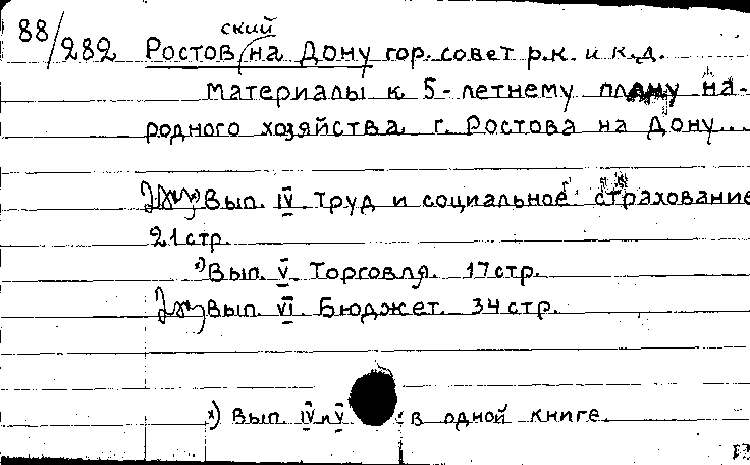 88/282 Ростов ский на Дону гор. совет р.к. и к.д.
Материалы к 5-летнему плану на-
родного хозяйства г. Ростова на Дону...
Вып. IV. Труд и социальное страхование
21 стр.
х) Вып. V. Торговля. 17 стр.
Вып. VI. Бюджет. 34 стр.
х) Вып. IV и V в одной книге.